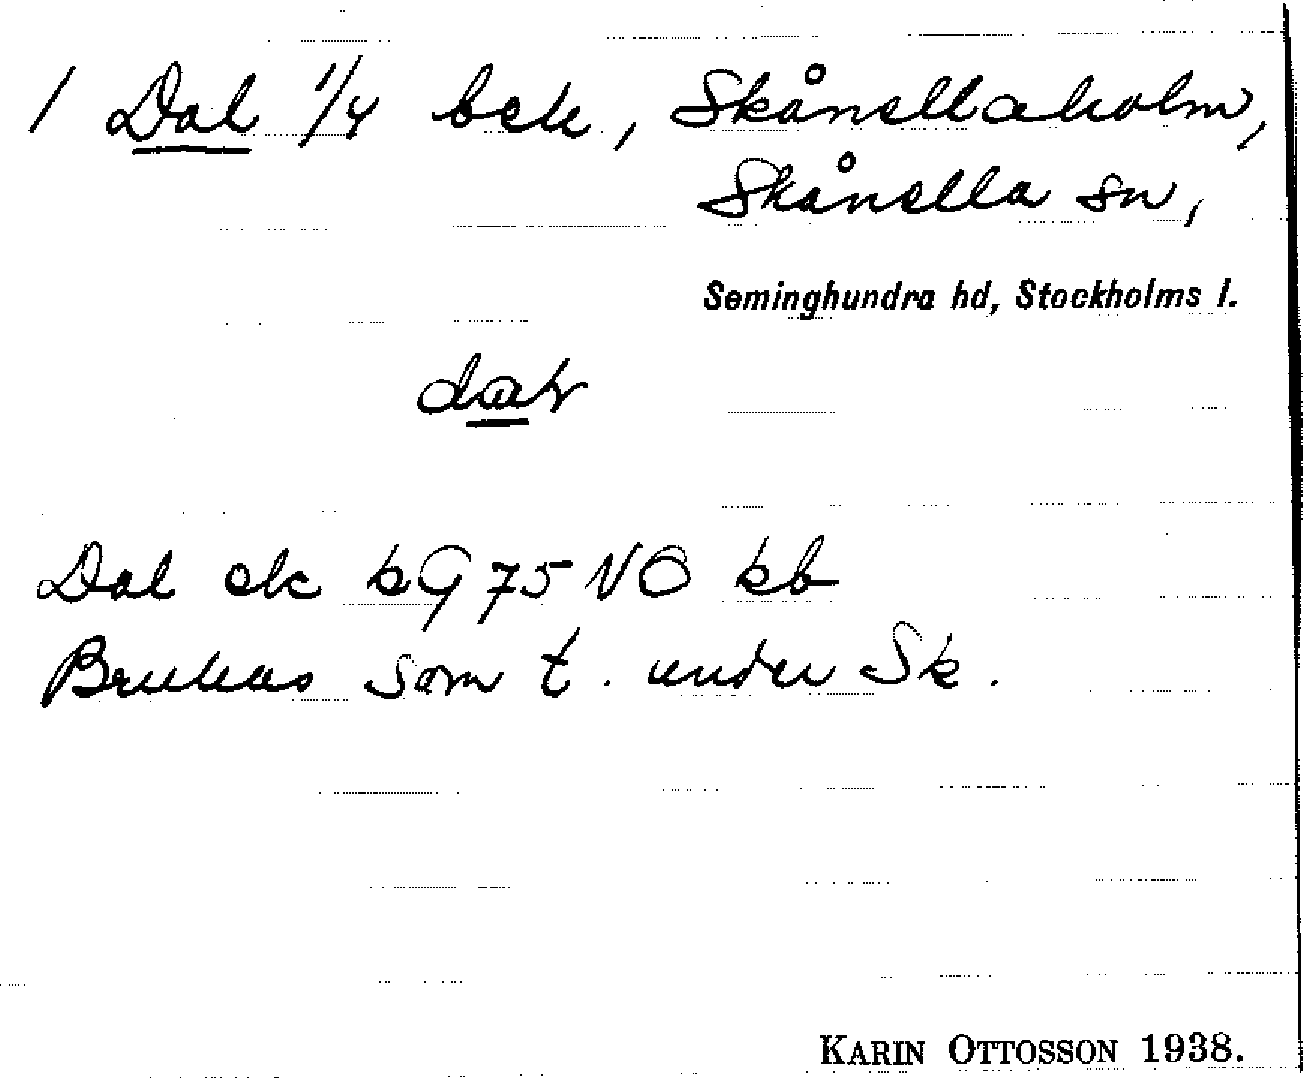 1 Dal 1/4 bek, Skånellaholm,
Skånella sn,
Seminghundra hd, Stockholms l.
Dal ek kG 75 NO kb
Brukas som t. under Sk.
KARIN OTTOSSON 1938.